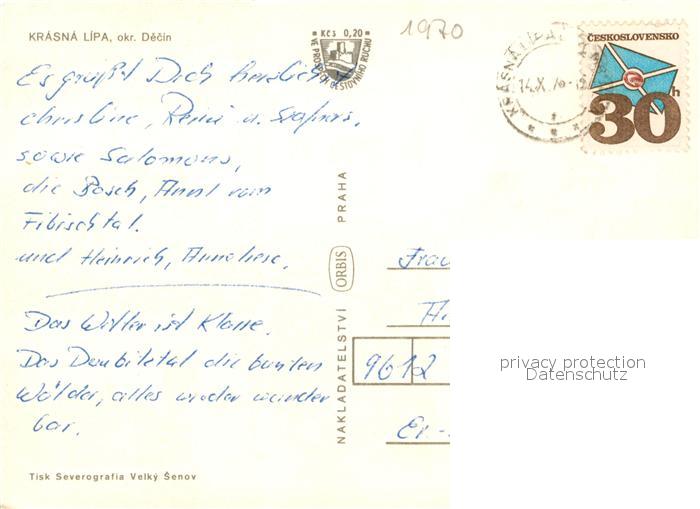 KRÁSNÁ LÍPA, okr. Děčín
Kčs 0,20
VE PROSPĚCH CESTOVNÍHO RUCHU
1970
KRÁSNÁ LÍPA
14.X.76
ČESKOSLOVENSKO
30h
Es grüßt Dich herzlich
Christine, Reini u.
sowie Salomons,
die Posch, Annl vom
Fibischtal.
und Heinrich, Anneliese.
Das Wetter ist Klasse.
Das Daubitztal die bunten
Wälder, alles wieder wunder
bar.
NAKLADATELSTVÍ ORBIS PRAHA
Frau
9612
privacy protection
Datenschutz
Tisk Severografia Velký Šenov